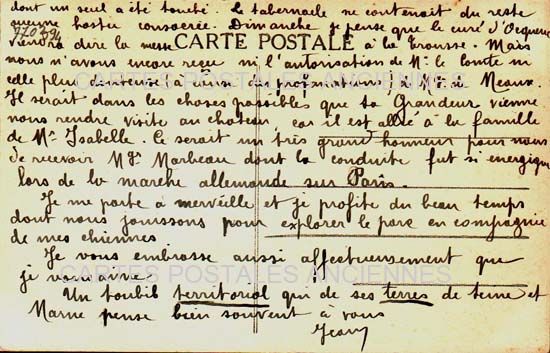 dont un seul a été touché. le tabernacle ne contenait du reste
aucune hostie consacrée. Dimanche je pense que le curé d'Ocquerre
viendra dire la messe à la Trousse. Mais
CARTE POSTALE
nous n'avons encore reçu ni l'autorisation de Mr le Comte ni
celle plus douteuse à cause du profanateur, à Mgr de Meaux.
Il serait dans les choses possibles que sa Grandeur vienne
nous rendre visite au château car il est allié à la famille
de Mr Isabelle. Ce serait un très grand honneur pour nous
de recevoir Mgr Marbeau dont la conduite fut si énergique
lors de la marche allemande sur Paris.
Je me porte à merveille et je profite du beau temps
dont nous jouissons pour explorer le parc en compagnie
de mes chiennes
Je vous embrasse aussi affectueusement que
je vous aime.
Un toubib territorial qui de ses terres de Seine et
Marne pense bien souvent à vous
Jean
CARTES POSTALES ANCIENNES
CARTES POSTALES ANCIENNES